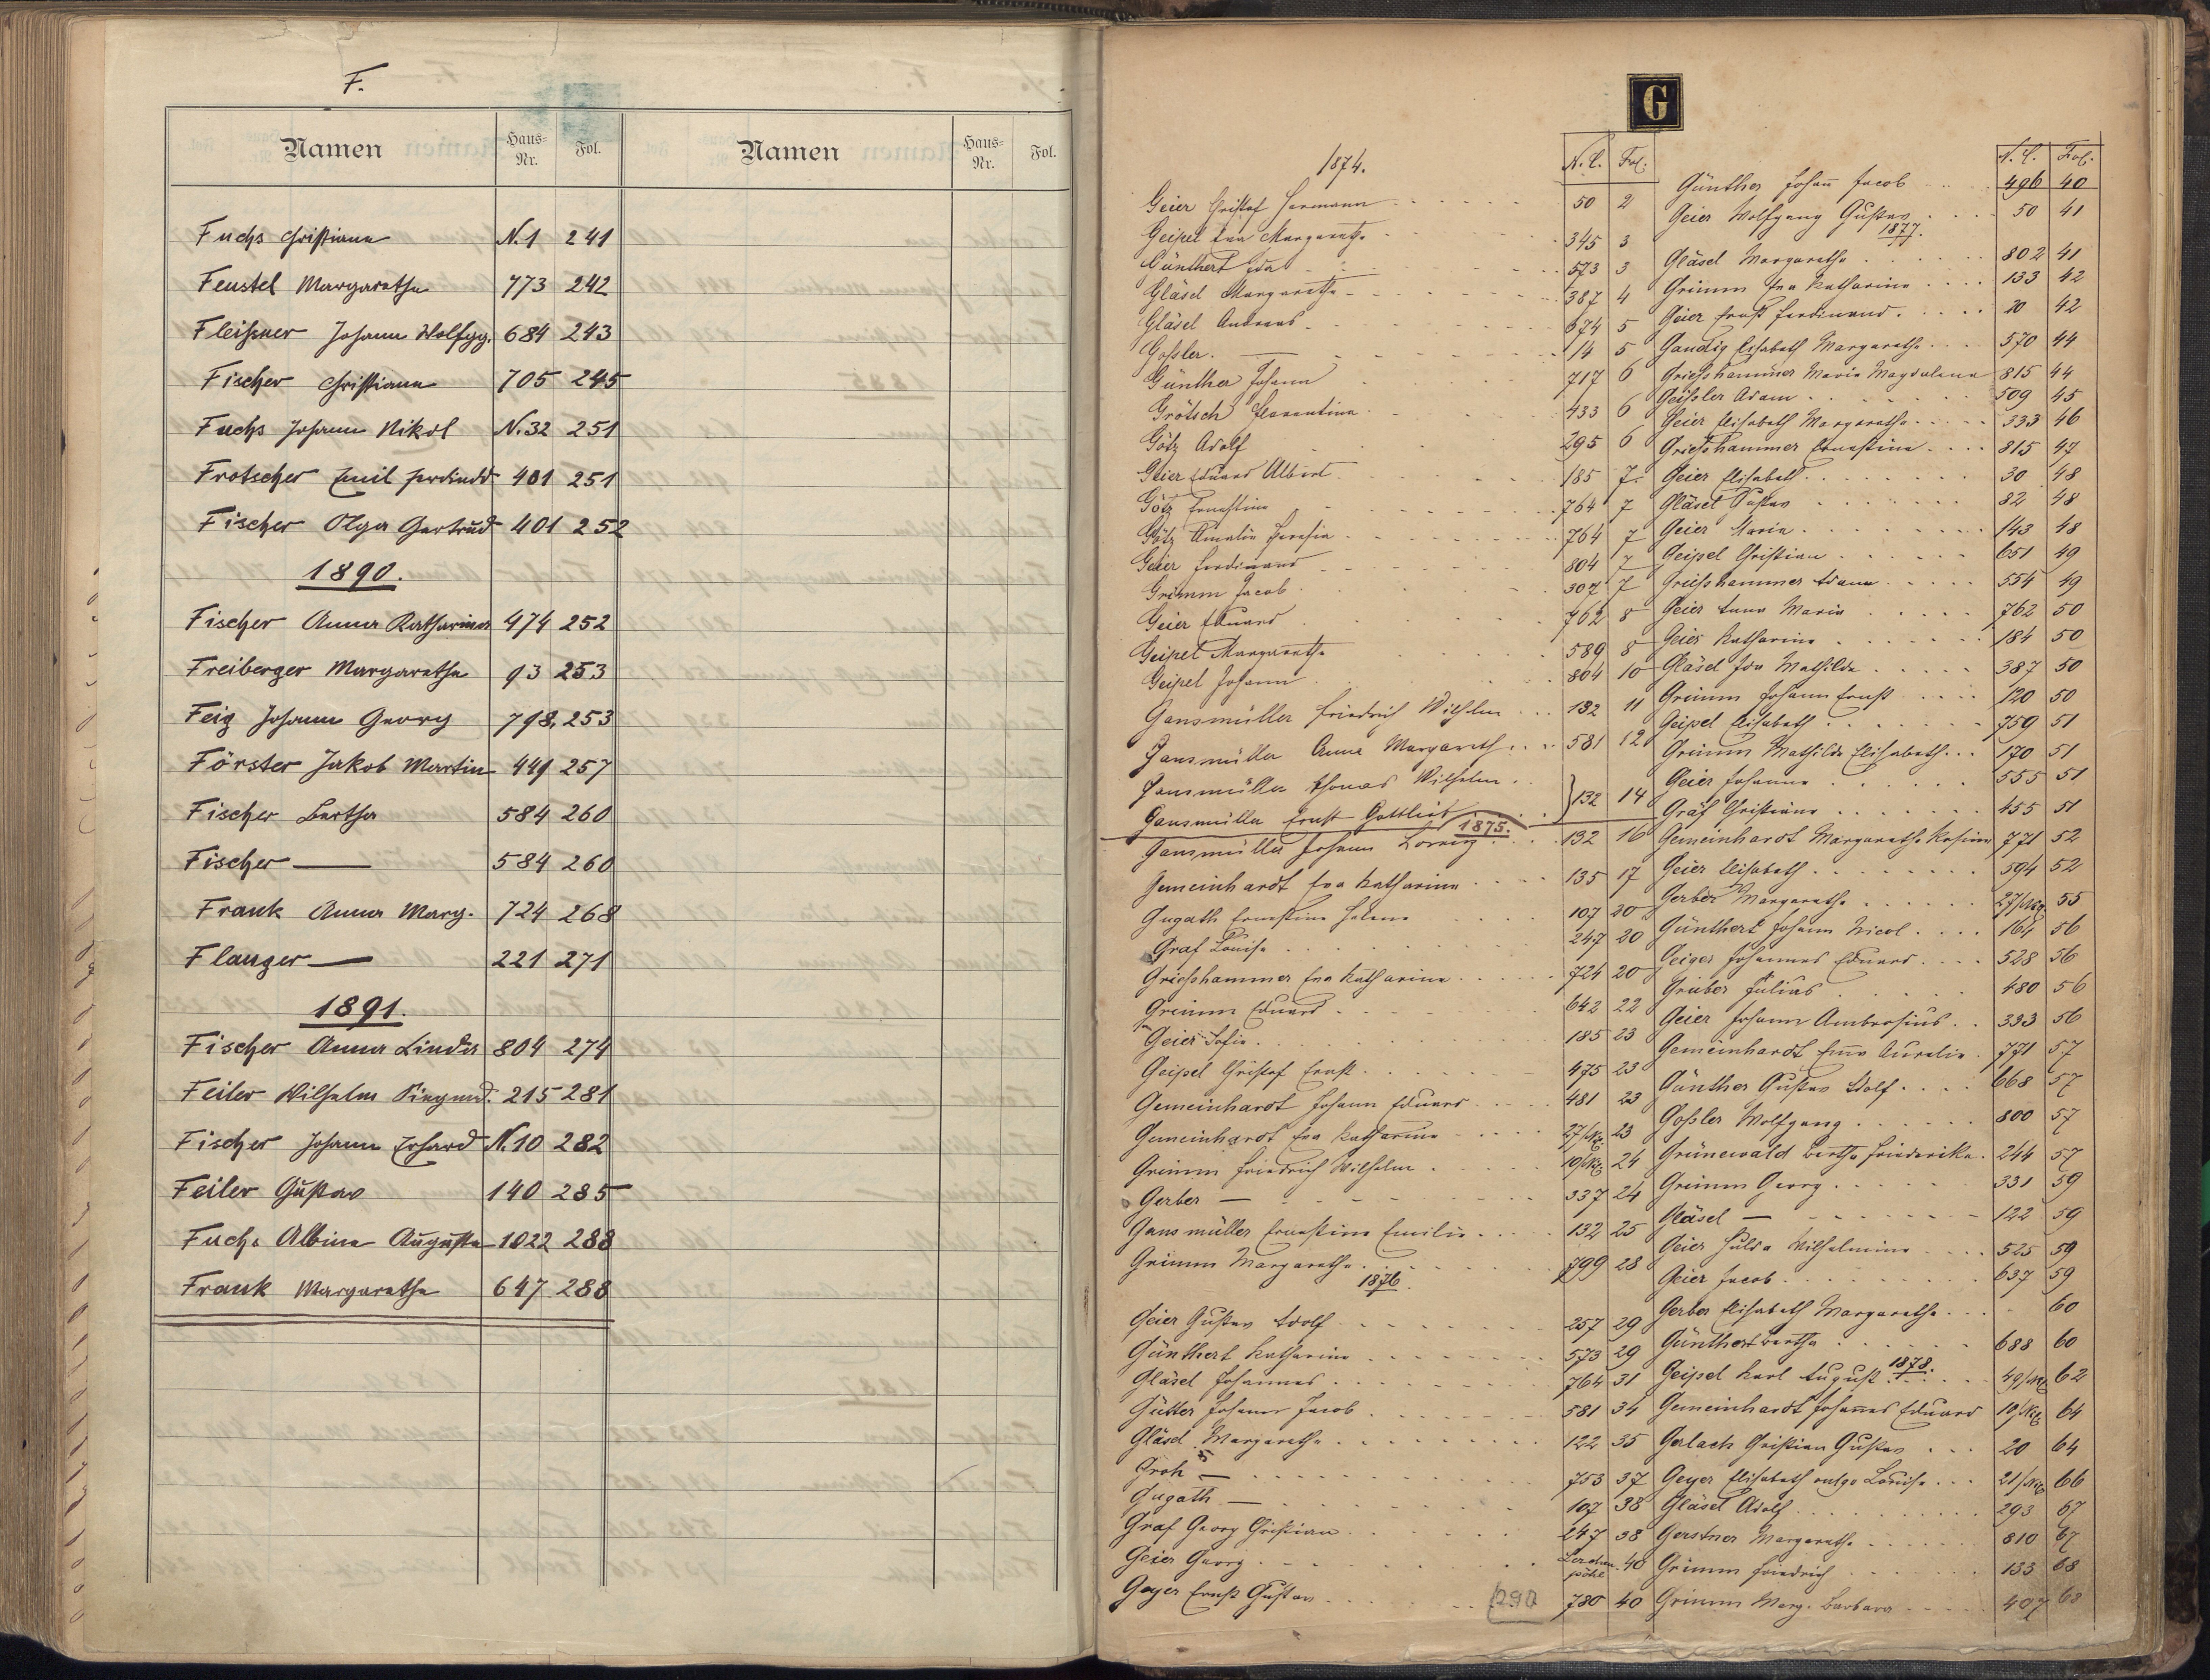 F.
Namen Haus-Nr. Fol. Namen Haus-Nr. Fol.
Fuchs Christiana N.1 241
Feustel Margaretha 773 242
Fleißner Johann Wolfgg. 684 243
Fischer Christiana 705 245
Fuchs Johann Nikol N.32 251
Frotscher Emil Ferdinand 401 251
Fischer Olga Gertrud 401 252
1890.
Fischer Anna Katharina 474 252
Freiberger Margaretha 93 253
Feig Johann Georg 798 253
Förster Jakob Martin 449 257
Fischer Bertha 584 260
Fischer — 584 260
Frank Anna Marg. 724 268
Flanger — 221 271
1891.
Fischer Anna Linda 804 274
Feiler Wilhelm Siegmd. 215 281
Fischer Johann Erhard N.10 282
Feiler Gustav 140 285
Fuchs Albine Augusta 1022 288
Frank Margaretha 647 288
G
1874. N. C. Fol.
Geier Christof Hermann 50 2
Geipel Eva Margaretha 345 3
Günthert Ida 573 3
Gläsel Margaretha 387 4
Gläsel Andreas 674 5
Goßler. — 14 5
Günther Johann 717 6
Grötsch Florentine 433 6
Götz Adolf 295 6
Geier Eduard Albert 185 7
Götz Ernestine 764 7
Götz Amalie Theresia 764 7
Geier Ferdinand 804 7
Grimm Jacob 307 7
Geier Eduard 762 8
Geipel Margaretha 589 8
Geipel Johann 804 10
Gansmüller Friedrich Wilhelm 132 11
Gansmüller Anna Margareth 581 12
Gansmüller Thomas Wilhelm
Gansmüller Ernst Gottlieb } 132 14
1875.
Gansmüller Johann Lorenz 132 16
Gemeinhardt Eva Katharina 135 17
Gugath Ernestine Helene 107 20
Graf Louise 247 20
Grießhammer Eva Katharina 724 20
Grimm Eduard 642 22
Geier Sofie 185 23
Geipel Christof Ernst 475 23
Gemeinhardt Johann Eduard 481 23
Gemeinhardt Eva Katharina 27/ 23
Grimm Friedrich Wilhelm 10/ 24
Gerber — 337 24
Gansmüller Ernestine Emilie 132 25
Grimm Margaretha 799 28
1876.
Geier Gustav Adolf 257 29
Günthert Katharina 573 29
Gläsel Johannes 764 31
Gütter Johann Jacob 581 34
Gläsel Margaretha 122 35
Groh — 753 37
Gugath — 107 38
Graf Georg Christian 247 38
Geier Georg Lerchenpöhl 40
Geyer Ernst Gustav 780 40
290
N. C. Fol.
Günther Johañ Jacob 496 40
Geier Wolfgang Gustav 50 41
1877.
Gläsel Margaretha 802 41
Grimm Eva Katharina 133 42
Geier Ernst Ferdinand 20 42
Gandig Elisabeth Margaretha 570 44
Grießhammer Maria Magdalena 815 44
Geißler Adam 509 45
Geier Elisabeth Margaretha 333 46
Grießhammer Ernestine 815 47
Geier Elisabeth 30 48
Gläsel Gustav 82 48
Geier Maria 143 48
Geipel Christian 651 49
Grießhammer Adam 554 49
Geier Anna Maria 762 50
Geier Katharina 184 50
Gläsel Ida Mathilde 387 50
Grimm Johann Ernst 120 50
Geipel Elisabeth 750 51
Grimm Mathilde Elisabeth 170 51
Geier Johanna 555 51
Gräf Christiane 455 51
Gemeinhardt Margaretha Rosina 771 52
Geier Elisabeth 594 52
Gerber Margaretha 27/ 55
Günthert Johann Nicol 164 56
Geiger Johannes Eduard 528 56
Gruber Julius 480 56
Geier Johann Ambrosius 333 56
Gemeinhardt Em̃a Aurelie 771 57
Günther Gustav Adolf 668 57
Goßler Wolfgang 800 57
Grünewald Bertha Friederike 244 57
Grimm Georg 331 59
Gläsel — 122 59
Geier Hulda Wilhelmine 525 59
Geier Jacob 637 59
Gerber Elisabeth Margaretha 60
Günthert Bertha 688 60
1878.
Geipel Karl August 49/ 62
Gemeinhardt Johannes Eduard 19/ 64
Gerlach Christian Gustav 20 64
Geyer Elisabeth vulgo Louise 21/ 66
Gläsel Adolf 293 67
Gerstner Margaretha 810 67
Grimm Friedrich 133 68
Grimm Marg. Barbara 407 68